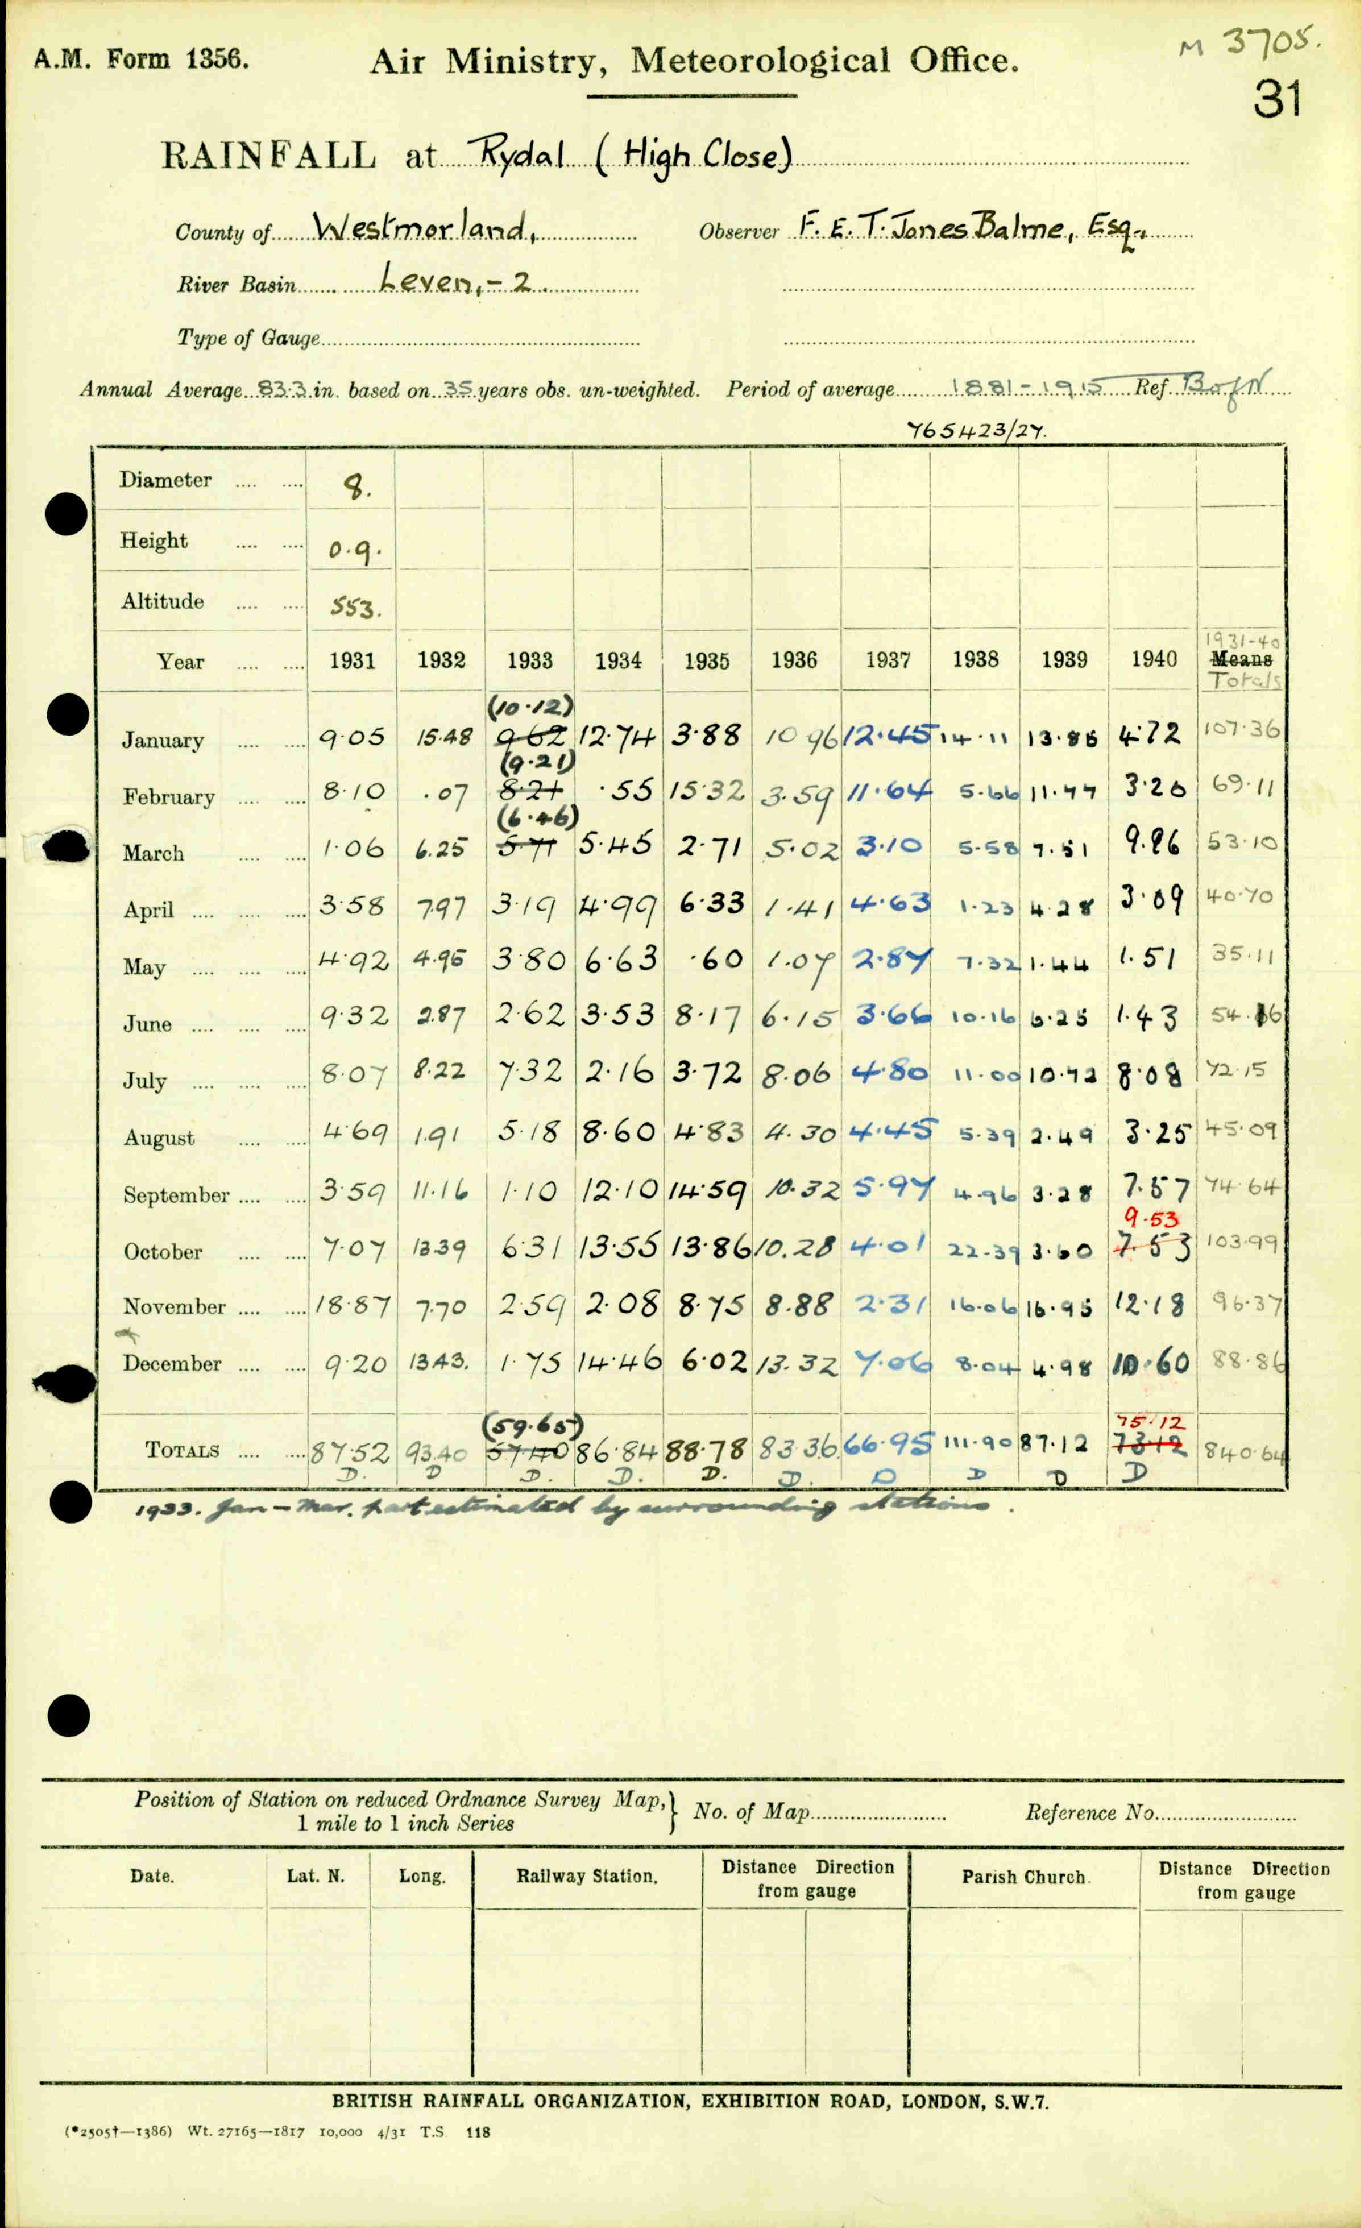 M 3705.
A.M. Form 1356. Air Ministry, Meteorological Office.
31
RAINFALL at Rydal (High Close)
County of Westmorland, Observer F. E. T. Jones Balme, Esq.,
River Basin Leven, - 2
Type of Gauge
Annual Average 83.3 in. based on 35 years obs. un-weighted. Period of average 1881-1915 Ref. B of N
765423/27.
Diameter 8.
Height 0.9.
Altitude 553.
1931-40
Year 1931 1932 1933 1934 1935 1936 1937 1938 1939 1940 Means
Totals
(10.12)
January 9.05 15.48 9.62 12.74 3.88 10.96 12.45 14.11 13.85 4.72 107.36
(9.21)
February 8.10 .07 8.21 .55 15.32 3.59 11.64 5.66 11.77 3.20 69.11
(6.46)
March 1.06 6.25 5.71 5.45 2.71 5.02 3.10 5.58 7.51 9.96 53.10
April 3.58 7.97 3.19 4.99 6.33 1.41 4.63 1.23 4.28 3.09 40.70
May 4.92 4.95 3.80 6.63 .60 1.07 2.87 7.32 1.44 1.51 35.11
June 9.32 2.87 2.62 3.53 8.17 6.15 3.66 10.16 6.25 1.43 54.16
July 8.07 8.22 7.32 2.16 3.72 8.06 4.80 11.00 10.72 8.08 72.15
August 4.69 1.91 5.18 8.60 4.83 4.30 4.45 5.39 2.49 3.25 45.09
September 3.59 11.16 1.10 12.10 14.59 10.32 5.97 4.96 3.28 7.57 74.64
9.53
October 7.07 13.39 6.31 13.55 13.86 10.28 4.01 22.39 3.60 7.53 103.99
November 18.87 7.70 2.59 2.08 8.75 8.88 2.31 16.06 16.95 12.18 96.37
December 9.20 13.43. 1.75 14.46 6.02 13.32 7.06 8.04 4.98 10.60 88.86
(59.65) 75.12
TOTALS 87.52 93.40 57.40 86.84 88.78 83.36 66.95 111.90 87.12 73.12 840.64
D. D D. D. D. D. D D D D
1933. Jan - Mar. part estimated by surrounding stations.
Position of Station on reduced Ordnance Survey Map, No. of Map Reference No.
1 mile to 1 inch Series
Date. Lat. N. Long. Railway Station. Distance Direction Parish Church. Distance Direction
from gauge from gauge
BRITISH RAINFALL ORGANIZATION, EXHIBITION ROAD, LONDON, S.W.7.
(*2505†—1386) Wt. 27165—1817 10,000 4/31 T.S. 118